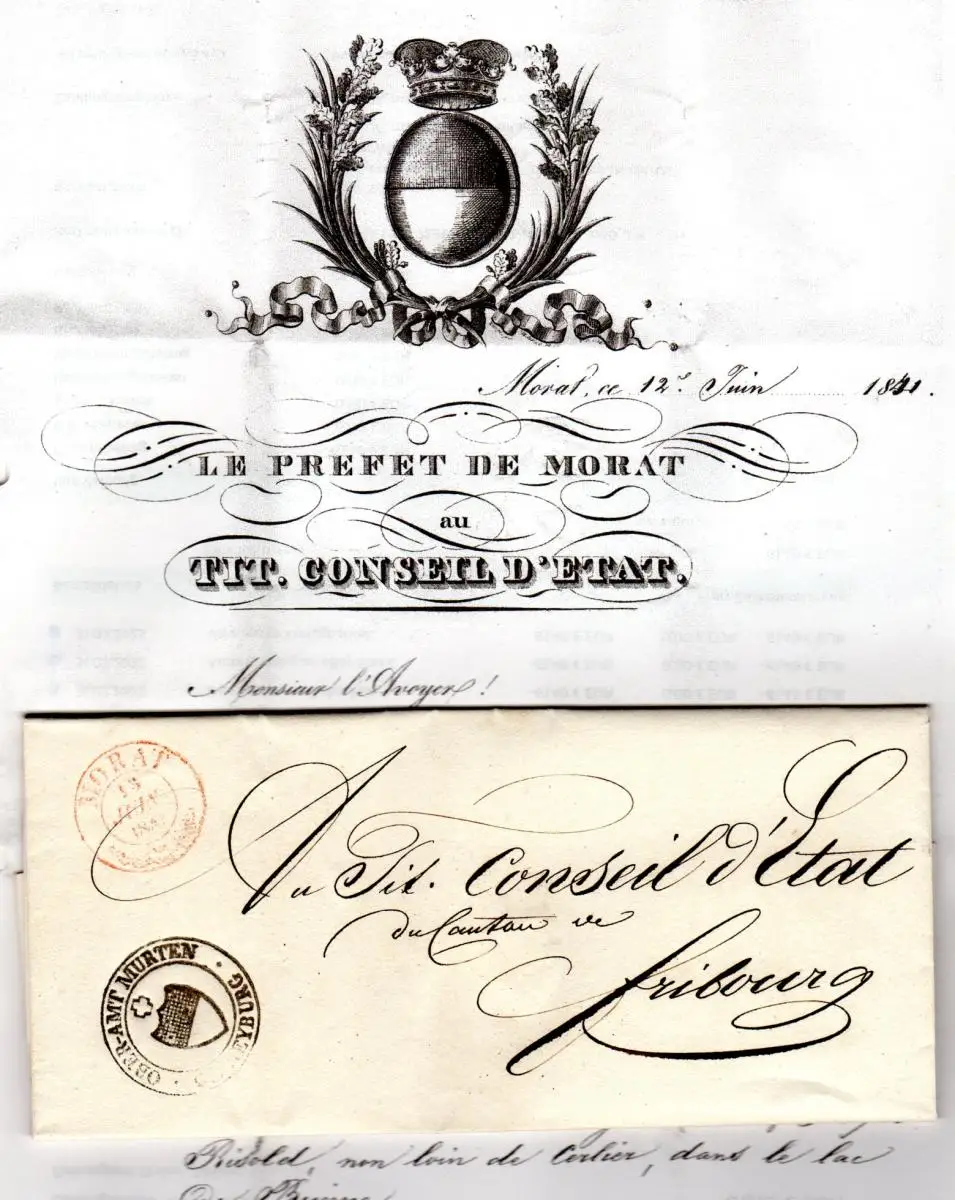 Morat, ce 12e Juin 1841.
LE PREFET DE MORAT
au
TIT. CONSEIL D'ETAT.
Monsieur l'Avoyer!
MORAT
13
JUIN
184
Au Tit. Conseil d'Etat
du Canton de
fribourg
OBER-AMT MURTEN
EYBURG
non loin de Cerlier, dans le lac
de Bienne